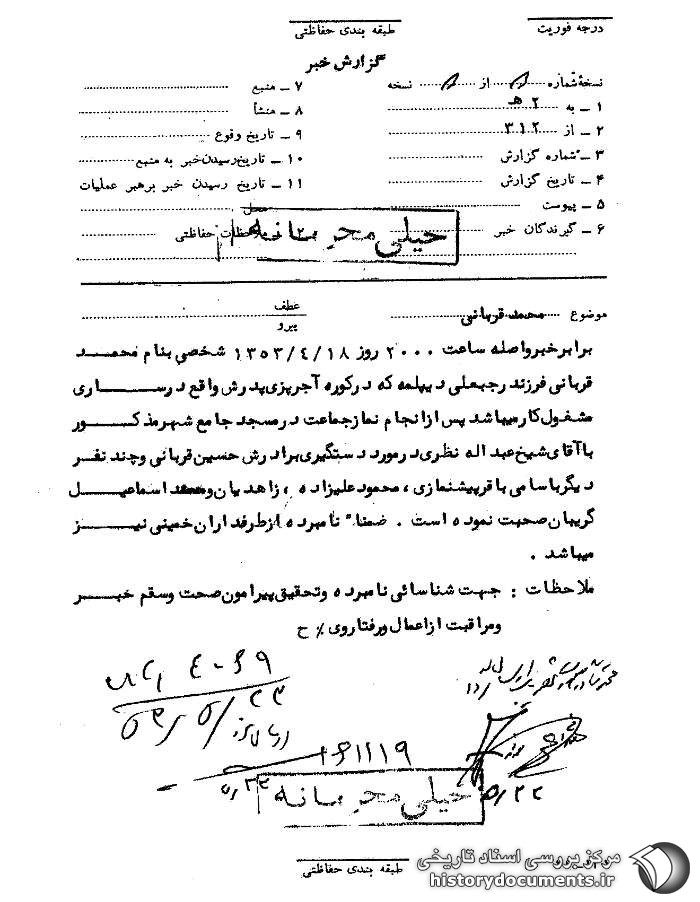 درجه فوریت
طبقه بندی حفاظتی
گزارش خبر
نسخهٔ شماره از نسخه
۱ ـ به ۲ هـ
۲ ـ از ۳۱۲
۳ ـ شماره گزارش
۴ ـ تاریخ گزارش
۵ ـ پیوست
۶ ـ گیرندگان خبر
۷ ـ منبع
۸ ـ منشأ
۹ ـ تاریخ وقوع
۱۰ ـ تاریخ رسیدن خبر به منبع
۱۱ ـ تاریخ رسیدن خبر برهبر عملیات
محل
۱۲ ـ ملاحظات حفاظتی
خیلی محرمانه
موضوع محمد قربانی
عطف
پیرو
برابر خبر واصله ساعت ۲۰۰۰ روز ۱۳۵۳/۴/۱۸ شخصی بنام محمد
قربانی فرزند رجبعلی دیپلمه که در کوره آجرپزی پدرش واقع در ساری
مشغول کار میباشد پس از انجام نماز جماعت در مسجد جامع شهر مذکور
با آقای شیخ عبداله نظری در مورد دستگیری برادرش حسین قربانی و چند نفر
دیگر باسامی باقر پیشنمازی ، محمود علیزاده ، زاهدیان و محمد اسماعیل
گریبان صحبت نموده است . ضمناً نامبرده از طرفداران خمینی نیز
میباشد .
ملاحظات : جهت شناسائی نامبرده و تحقیق پیرامون صحت و سقم خبر
و مراقبت از اعمال و رفتار وی ٪ ح
۵۳/۵/۲۳
۱۶۱۱۱۹
۵/۲۳
۵/۲۲
خیلی محرمانه
طبقه بندی حفاظتی
مرکز بررسی اسناد تاریخی
historydocuments.ir